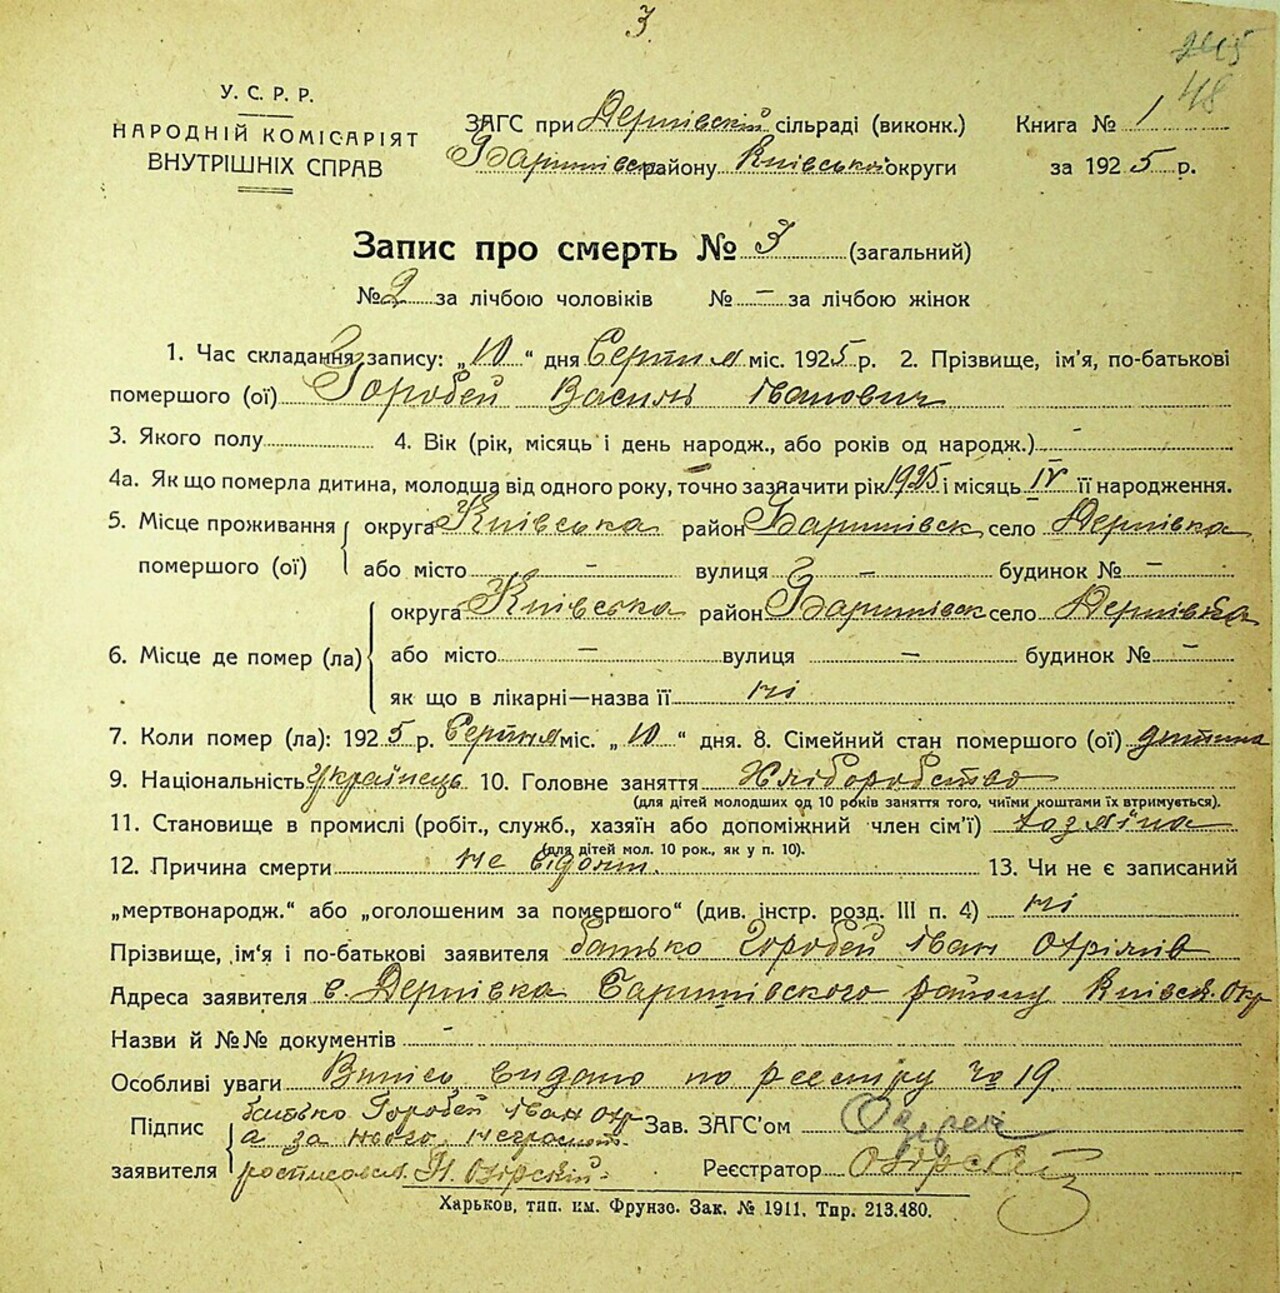 3
48
У. С. Р. Р.
НАРОДНІЙ КОМІСАРІЯТ
ВНУТРІШНІХ СПРАВ
ЗАГС при Дернівскій сільраді (виконк.) Книга № 1
Баришівск району Київської округи за 1925 р.
Запис про смерть № 3 (загальний)
№ 2 за лічбою чоловіків № – за лічбою жінок
1. Час складання запису: „10“ дня Серпня міс. 1925 р. 2. Прізвище, ім'я, по-батькові
помершого (ої) Горобей Василь Іванович
3. Якого полу 4. Вік (рік, місяць і день народж., або років од народж.) –
4а. Як що померла дитина, молодша від одного року, точно зазначити рік 1925 і місяць IV її народження.
5. Місце проживання округа Київська район Баришівск село Дернівка
помершого (ої) або місто – вулиця – будинок № –
округа Київська район Баришівск село Дернівка
6. Місце де помер (ла) або місто – вулиця – будинок № –
як що в лікарні—назва її ні
7. Коли помер (ла): 1925 р. Серпня міс. „10“ дня. 8. Сімейний стан помершого (ої) дитина
9. Національність Українець 10. Головне заняття Хліборобство
(для дітей молодших од 10 років заняття того, чиїми коштами їх втримується).
11. Становище в промислі (робіт., служб., хазяїн або допоміжний член сім'ї) хозяїна
(для дітей мол. 10 рок., як у п. 10).
12. Причина смерти не відом. 13. Чи не є записаний
„мертвонародж.“ або „оголошеним за помершого“ (див. інстр. розд. III п. 4) ні
Прізвище, ім'я і по-батькові заявителя батько Горобей Іван
Адреса заявителя с. Дернівка Баришівского району Київск. Окр
Назви й №№ документів –
Особливі уваги Випись видано по реєстру № 19
Підпис батько Горобей Іван Зав. ЗАГС'ом
а за нього неграмотн.
заявителя росписався Озірский Реєстратор Озірский
Харьков, тип. им. Фрунзе. Зак. № 1911. Тир. 213.480.